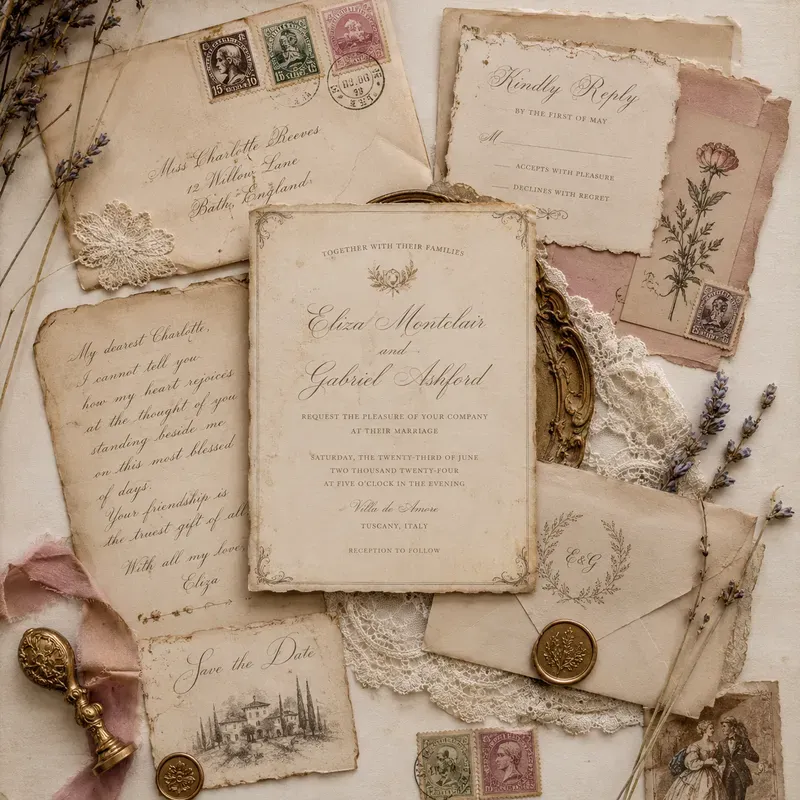 Miss Charlotte Reeves
12 Willow Lane
Bath, England
Kindly Reply
BY THE FIRST OF MAY
M
ACCEPTS WITH PLEASURE
DECLINES WITH REGRET
TOGETHER WITH THEIR FAMILIES
Eliza Montclair
and
Gabriel Ashford
REQUEST THE PLEASURE OF YOUR COMPANY
AT THEIR MARRIAGE
SATURDAY, THE TWENTY-THIRD OF JUNE
TWO THOUSAND TWENTY-FOUR
AT FIVE O'CLOCK IN THE EVENING
Villa de Amore
TUSCANY, ITALY
RECEPTION TO FOLLOW
My dearest Charlotte,
I cannot tell you
how my heart rejoices
at the thought of you
standing beside me
on this most blessed
of days.
Your friendship is
the truest gift of all
With all my love,
Eliza
E&G
Save the Date